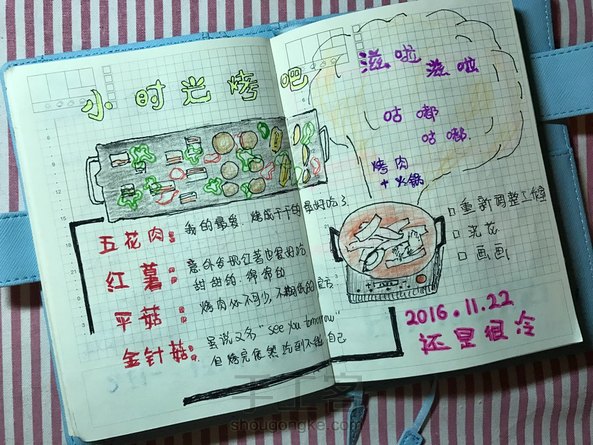 小时光烤吧
五花肉：我的最爱，烤成干干的最好吃了
红薯：意外发现红薯也爱好吃
甜甜的，绵绵的
平菇：烤肉必不可少，不
金针菇：虽说又名"see you tomorrow"
但烤完依然 自己
滋啦 滋啦
咕嘟
咕嘟.
烤肉
+火锅
□ 重新调整工作室
□ 浇花
□ 画画
2016.11.22
还是很冷
手工客
shougongke.com